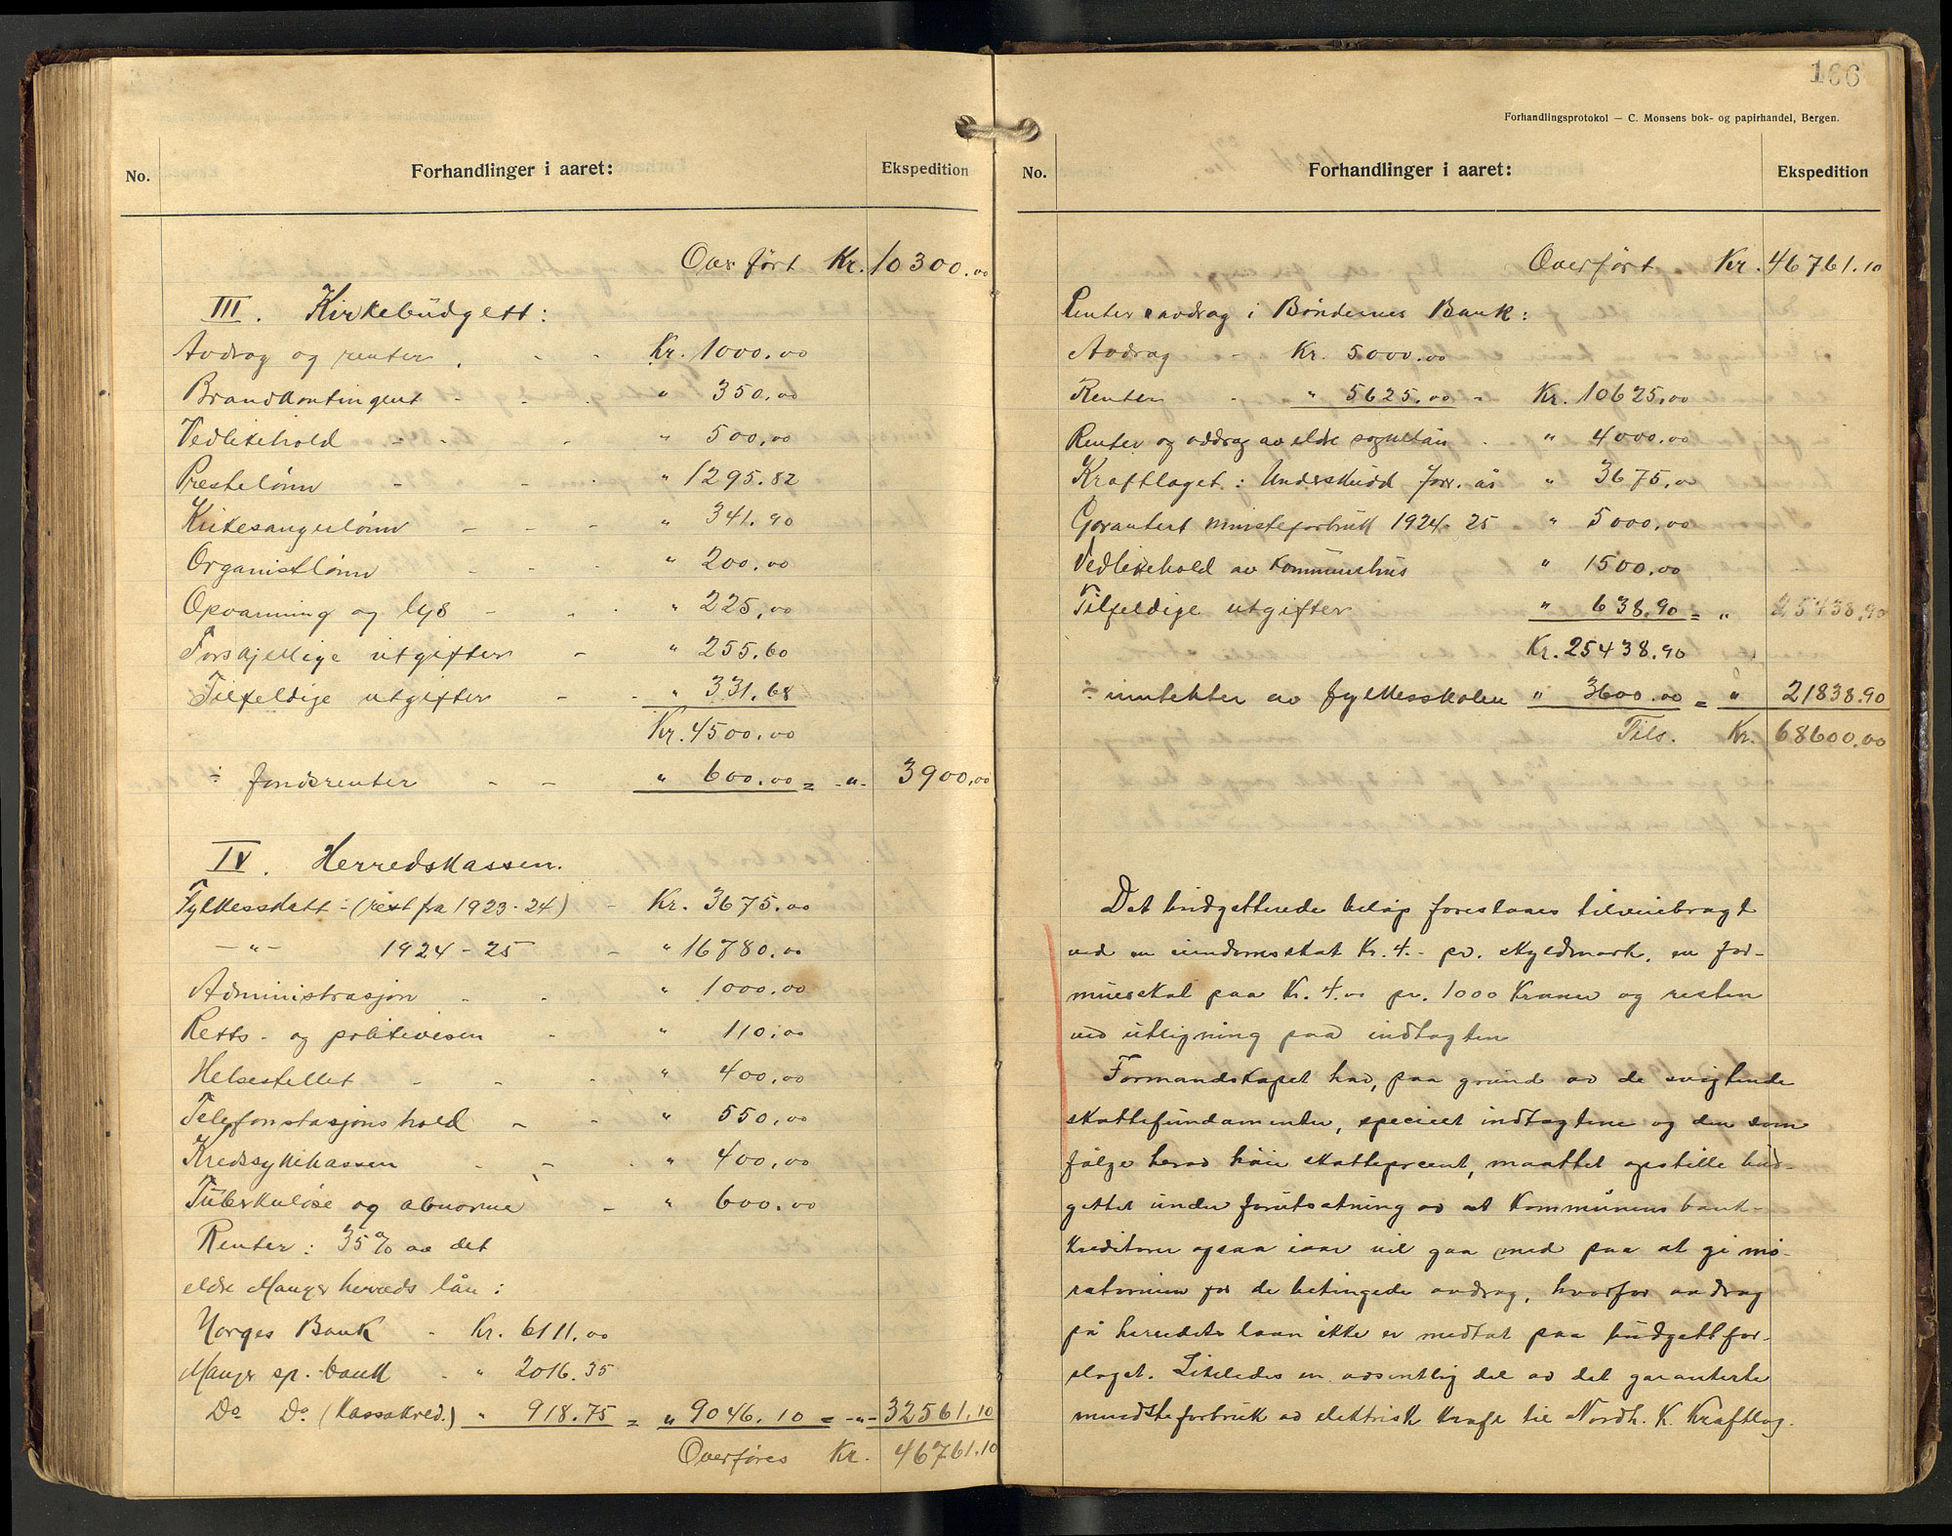 No.
Forhandlinger i aaret:
Ekspedition
Overført Kr. 10300.00
III. Kirkebudgett:
Avdrag og renter Kr. 1000.00
Brandkontingent " 350.00
Vedlikehold " 500.00
Prestelønn " 1295.82
Kirkesangerlønn " 341.90
Organistlønn " 200.00
Opvarming og lys " 225.00
Forskjellige utgifter " 255.60
Tilfeldige utgifter " 331.68
Kr. 4500.00
÷ fondsrenter " 600.00 = -"- 3900.00
IV. Herredskassen.
Fylkesskatt - (rest fra 1923-24) - Kr. 3675.00
-"- 1924-25 - " 16780.00
Administrasjon " 1000.00
Retts- og politivesen " 110.00
Helsestellet " 400.00
Telefonstasjonshold " 550.00
Kredssykekassen " 400.00
Tuberkuløse og abnorme " 600.00
Renter: 35% av det
eldre Manger herreds lån:
Norges Bank - Kr. 6111.00
Manger sp. bank - " 2016.35
Do Do (Kassakred.) " 918.75 = " 9046.10 = -"- 32561.10
Overføres Kr. 46761.10
166
Forhandlingsprotokol — C. Monsens bok- og papirhandel, Bergen.
No.
Forhandlinger i aaret:
Ekspedition
Overført Kr. 46761.10
Renter & avdrag i Bøndernes Bank:
Avdrag - Kr. 5000.00
Renter - " 5625.00 - Kr. 10625.00
Renter og avdrag av eldre sognelån - " 4000.00
Kraftlaget: Underskudd forr. år " 3675.00
Garantert minsteforbruk 1924-25 " 5000.00
Vedlikehold av kommunehus " 1500.00
Tilfeldige utgifter " 638.90 = " 25438.90
Kr. 25438.90
÷ inntekter av fylkesskolen " 3600.00 = " 21838.90
Tils. Kr. 68600.00
Det budgetterede beløp foreslaaes tilveiebragt
ved en eiendomsskat Kr. 4.- pr. skyldmark, en for-
muesskat paa Kr. 4.00 pr. 1000 Kroner og resten
ved utligning paa indtægten
Formandskapet har, paa grund av de svigtende
skattefundamenter, specielt indtægtene og den som
følge herav høie skatteprocent, maattet opstille bud-
gettet under forutsætning av at Kommunens bank-
kreditorer ogsaa iaar vil gaa med paa at gi mo-
ratorium for de betingede avdrag, hvorfor avdrag
på herredets laan ikke er medtat paa budgettfor-
slaget. Likeledes en væsentlig del av det garanterte
mindsteforbruk av elektrisk kraft til Nordh. K. Kraftlag.